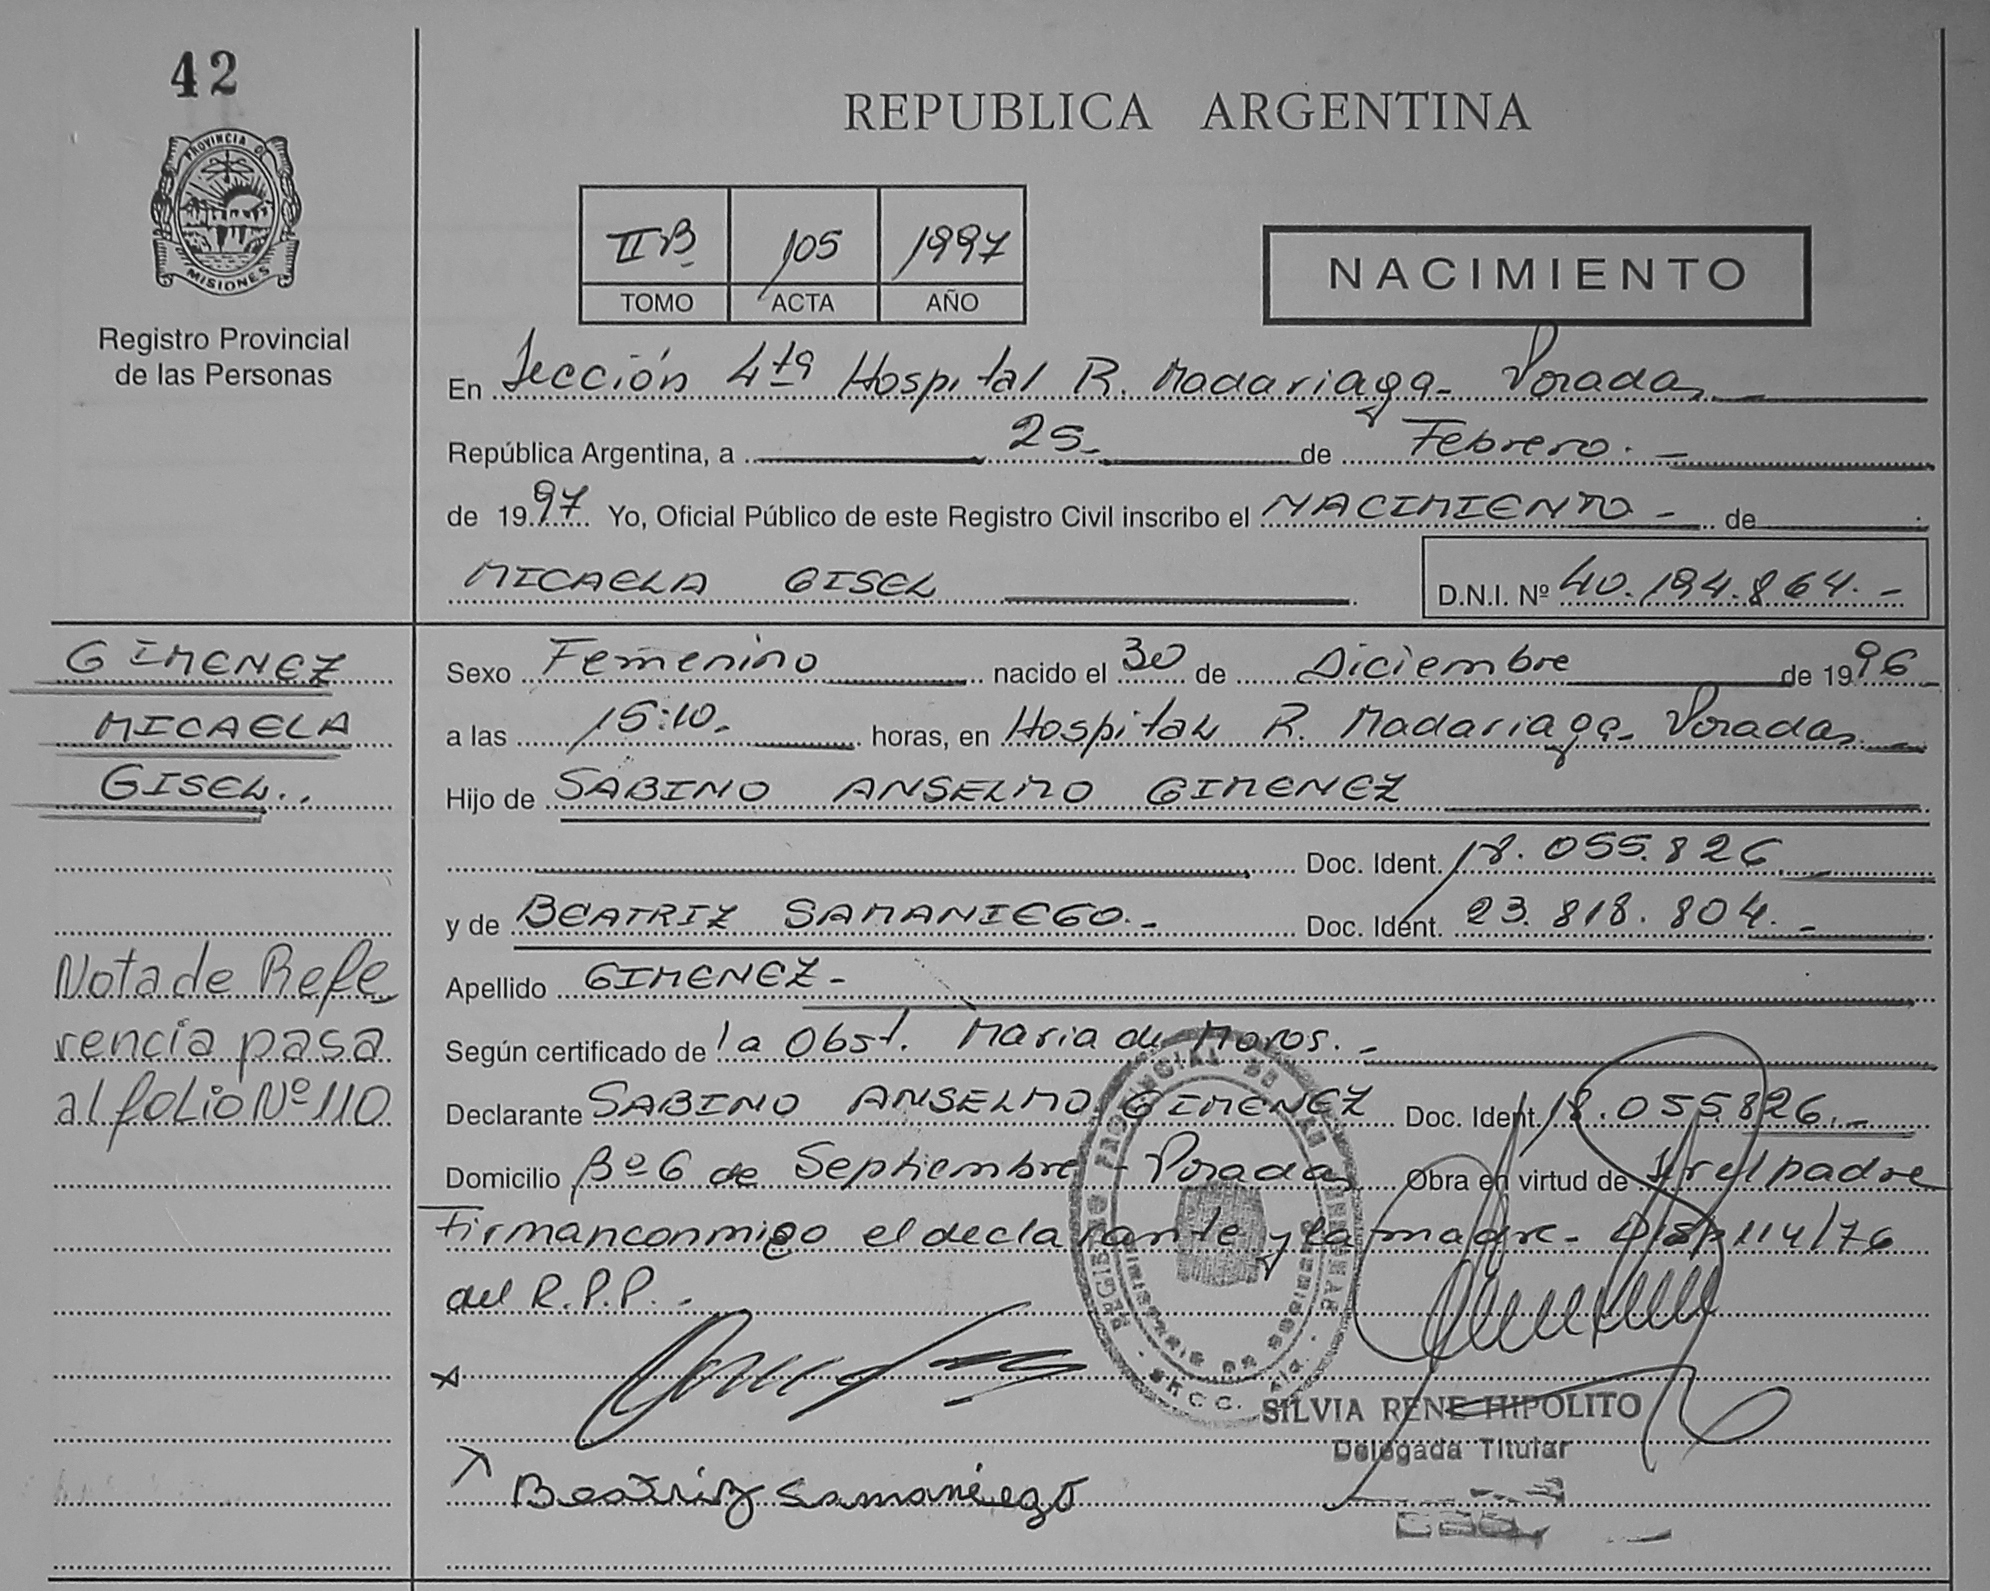 42
PROVINCIA DE
MISIONES
Registro Provincial
de las Personas
REPUBLICA ARGENTINA
II B 105 1997
TOMO ACTA AÑO
NACIMIENTO
En Sección 4ta Hospital R. Madariaga - Posadas
República Argentina, a 25 de Febrero. -
de 1997 Yo, Oficial Público de este Registro Civil inscribo el NACIMIENTO - de
MICAELA GISEL
D.N.I. Nº 40.194.864. -
GIMENEZ
MICAELA
GISEL..
Sexo Femenino nacido el 30 de Diciembre de 1996
a las 15:10. horas, en Hospital R. Madariaga - Posadas
Hijo de SABINO ANSELMO GIMENEZ
Doc. Ident. 18.055.826
y de BEATRIZ SAMANIEGO. - Doc. Ident. 23.818.804. -
Apellido GIMENEZ -
Según certificado de la Obst. Maria de Moros. -
Declarante SABINO ANSELMO GIMENEZ Doc. Ident. 18.055826. -
Domicilio Bº 6 de Septiembre - Posadas Obra en virtud de ser el padre
Firman conmigo el declarante y la madre - Disp 114/76
del R.P.P. -
Nota de Refe
rencia pasa
al folio Nº 110
REGISTRO PROVINCIAL DE LAS PERSONAS
MINISTERIO DE GOBIERNO
SILVIA RENE HIPOLITO
Delegada Titular
X
X Beatriz Samaniego